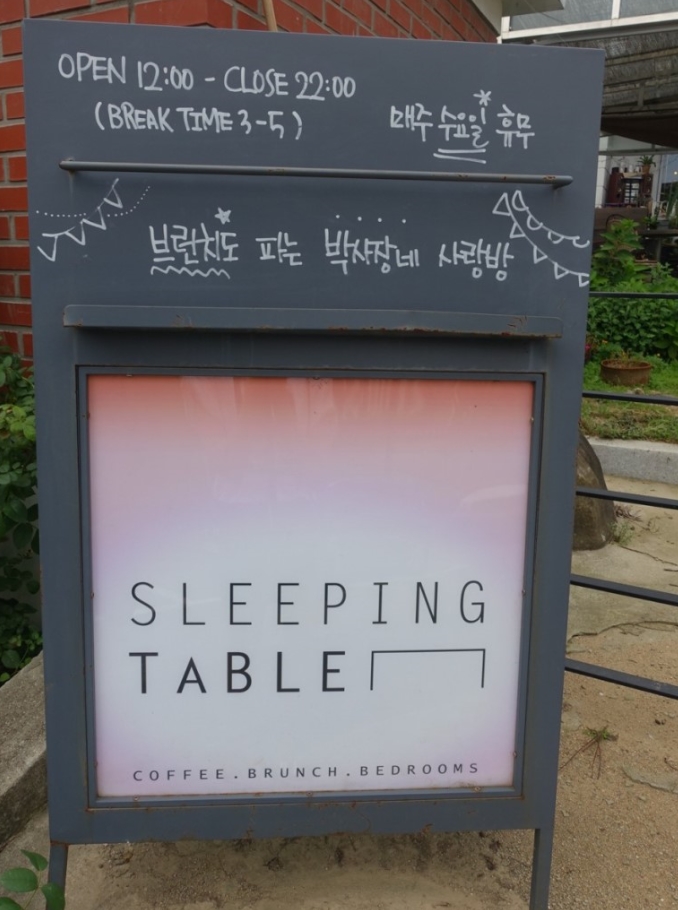 OPEN 12:00 - CLOSE 22:00
(BREAK TIME 3-5)
매주 수요일 휴무
브런치도 파는 박사장네 사랑방
SLEEPING
TABLE
COFFEE.BRUNCH.BEDROOMS